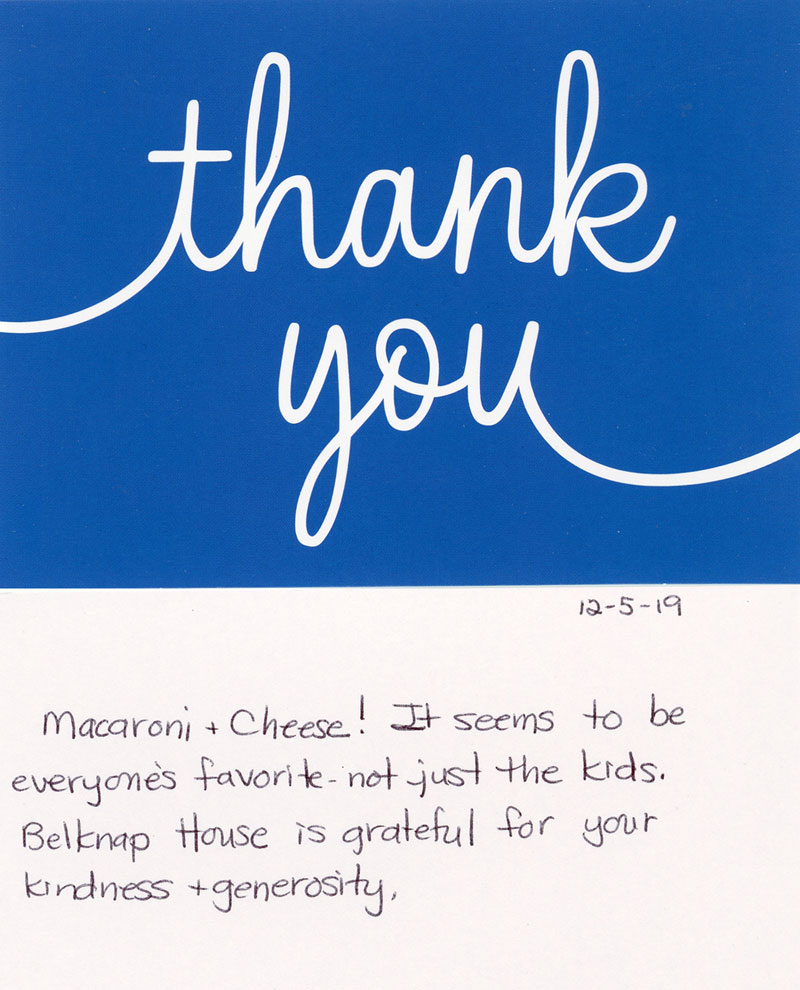 thank
you
12-5-19
Macaroni + Cheese! It seems to be
everyone's favorite - not just the kids.
Belknap House is grateful for your
kindness + generosity,